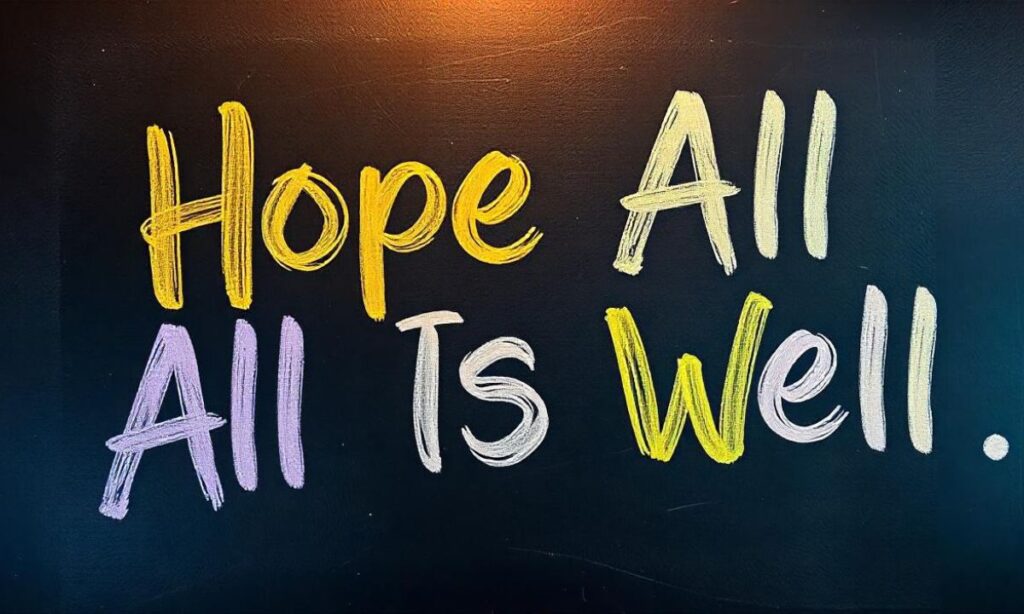 Hope All
All Ts Well.